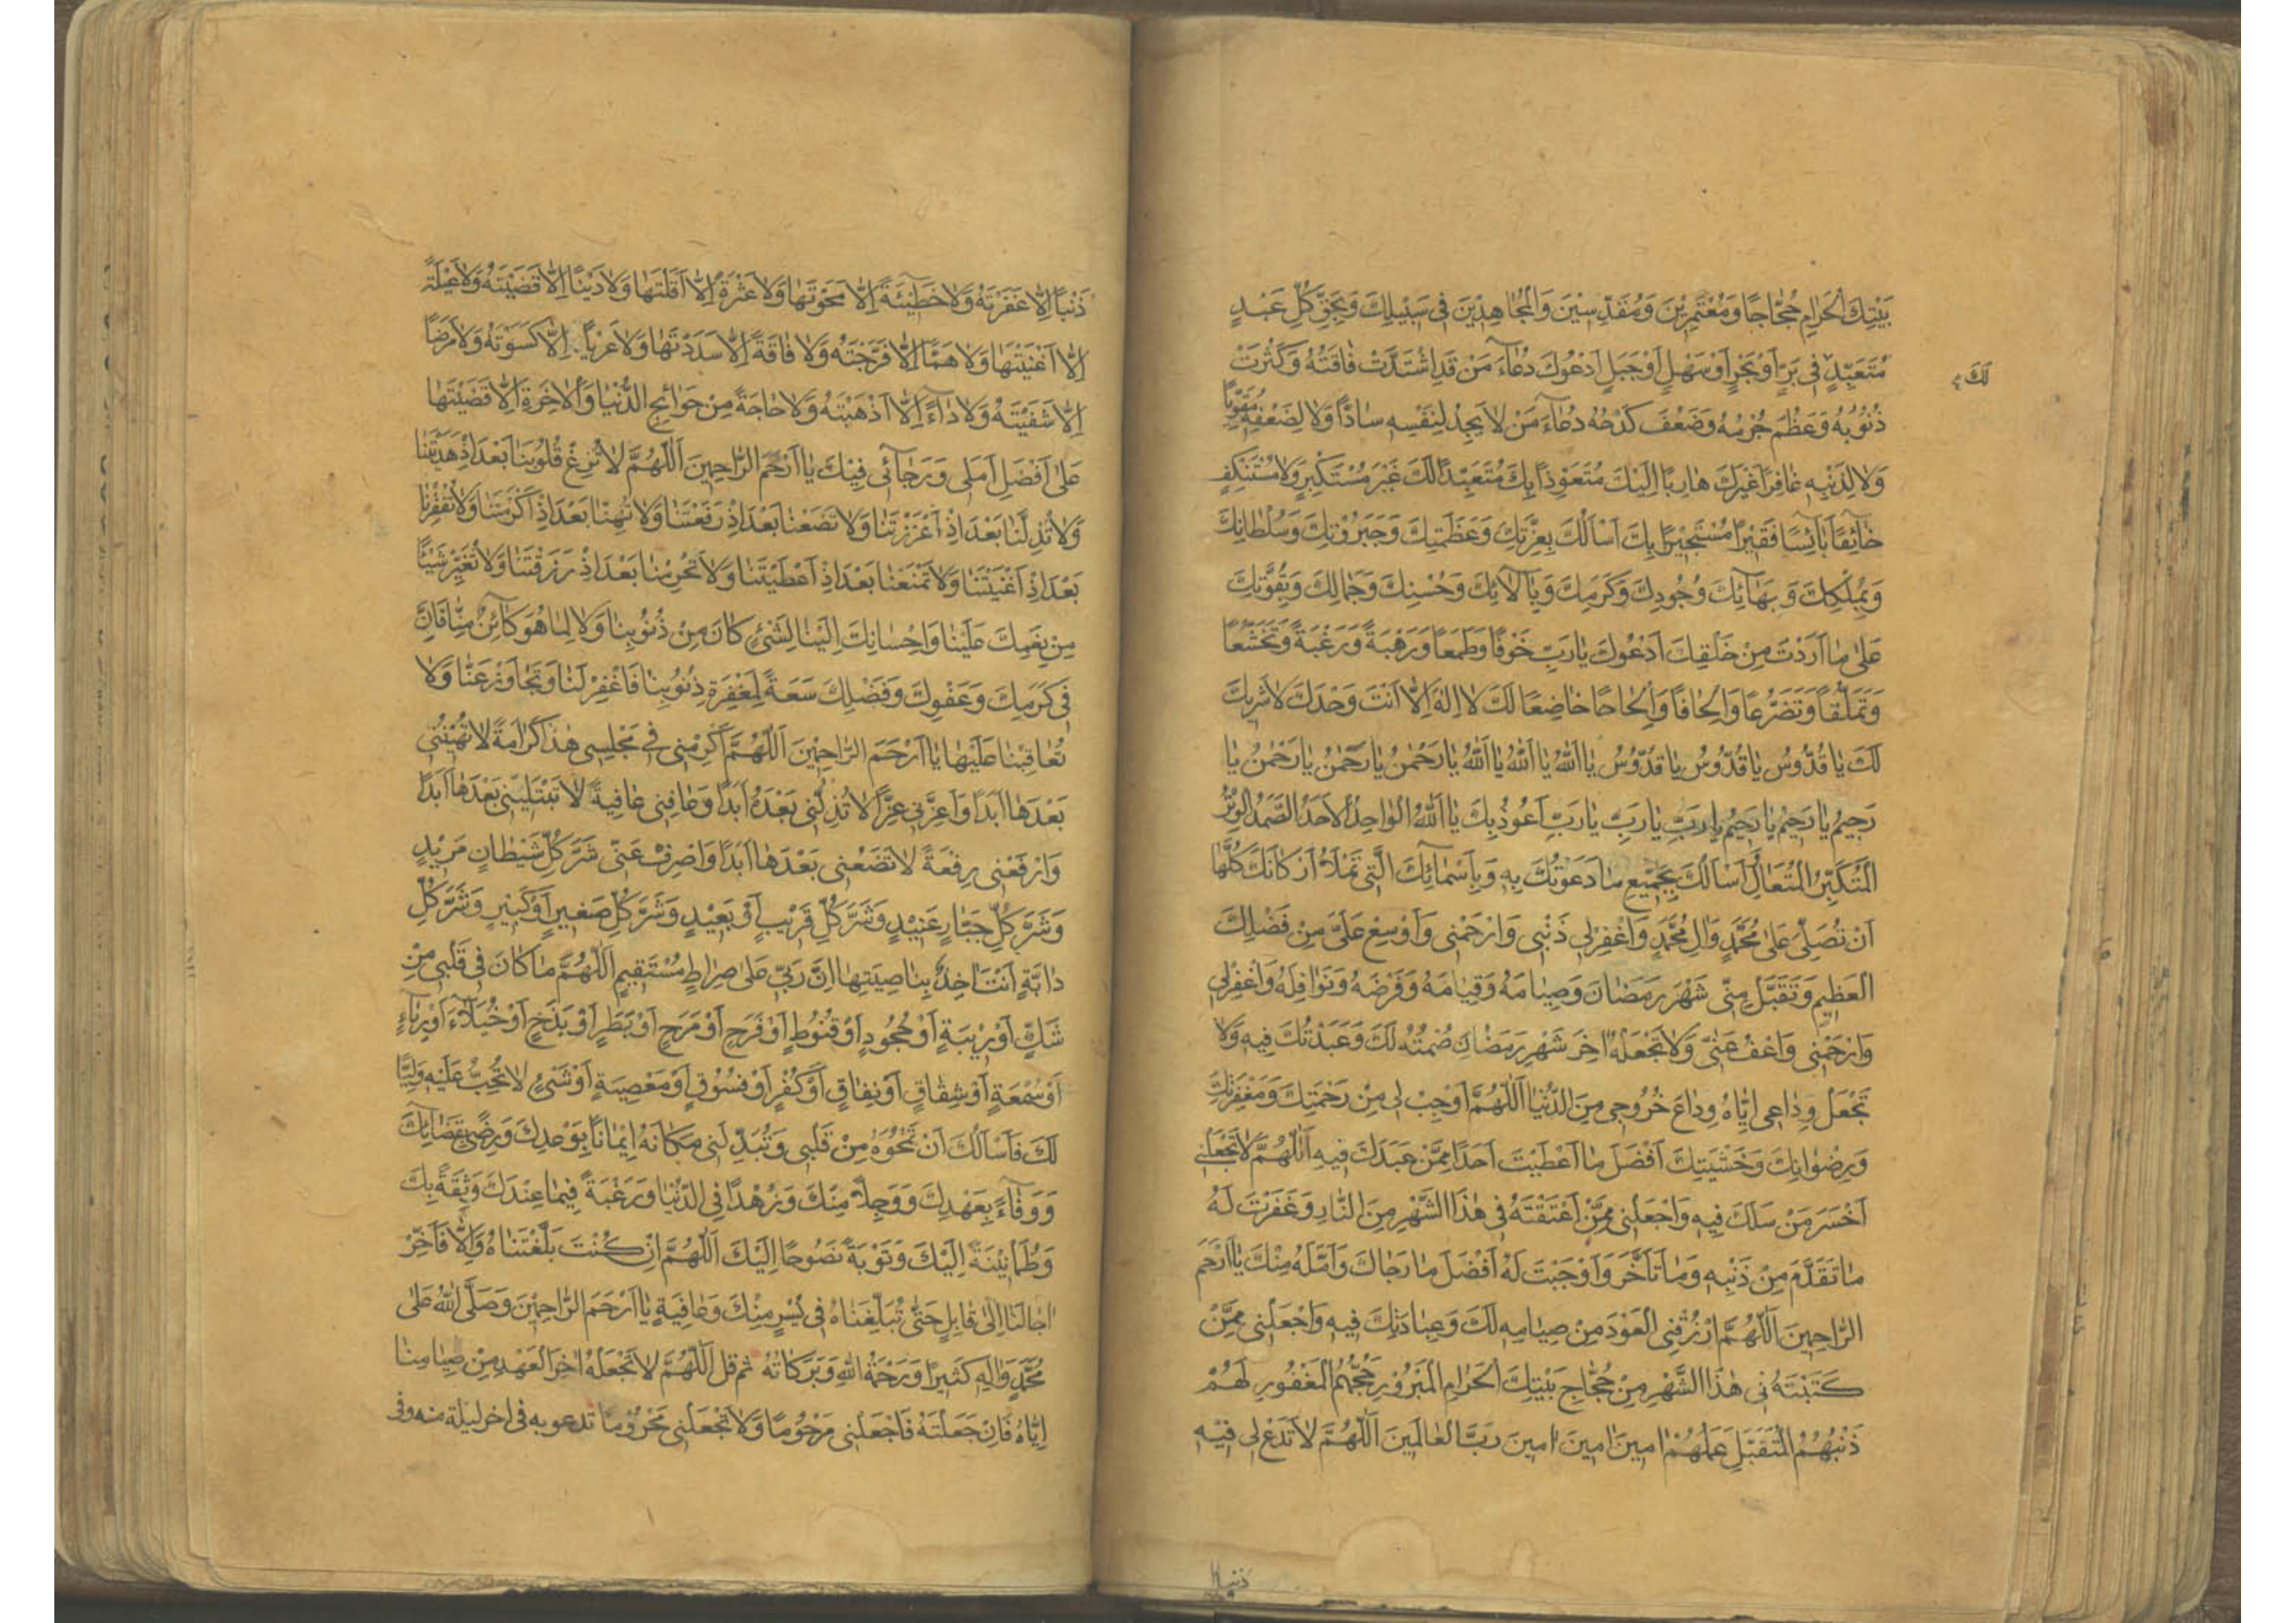 بَيْتِكَ الْحَرَامِ حُجَّاجًا وَمُعْتَمِرِيْنَ وَمُقَدِّسِيْنَ وَالْمُجَاهِدِيْنَ فِى سَبِيْلِكَ وَبِحَقِّ كُلِّ عَبْدٍ
مُتَعَبِّدٍ فِى بَرٍّ اَوْ بَحْرٍ اَوْ سَهْلٍ اَوْ جَبَلٍ اَدْعُوكَ دُعَاءَ مَنْ قَدِ اشْتَدَّتْ فَاقَتُهُ وَكَثُرَتْ
لَكَ
ذُنُوبُهُ وَعَظُمَ جُرْمُهُ وَضَعُفَ كَدْحُهُ دُعَاءَ مَنْ لَا يَجِدُ لِنَفْسِهِ سَادًّا وَلَا لِضَعْفِهِ مُقَوِّيًا
وَلَا لِذَنْبِهِ غَافِرًا غَيْرَكَ هَارِبًا اِلَيْكَ مُتَعَوِّذًا بِكَ مُتَعَبِّدًا لَكَ غَيْرَ مُسْتَكْبِرٍ وَلَا مُسْتَنْكِفٍ
خَائِفًا بَائِسًا فَقِيْرًا مُسْتَجِيْرًا بِكَ اَسْاَلُكَ بِعِزَّتِكَ وَعَظَمَتِكَ وَجَبَرُوْتِكَ وَسُلْطَانِكَ
وَبِمُلْكِكَ وَبَهَائِكَ وَجُودِكَ وَكَرَمِكَ وَبِآلَائِكَ وَحُسْنِكَ وَجَمَالِكَ وَبِقُوَّتِكَ
عَلٰى مَا اَرَدْتَ مِنْ خَلْقِكَ اَدْعُوكَ يَا رَبِّ خَوْفًا وَطَمَعًا وَرَهْبَةً وَرَغْبَةً وَتَخَشُّعًا
وَتَمَلُّقًا وَتَضَرُّعًا وَاِلْحَافًا وَاِلْحَاحًا خَاضِعًا لَكَ لَا اِلٰهَ اِلَّا اَنْتَ وَحْدَكَ لَا شَرِيْكَ
لَكَ يَا قُدُّوسُ يَا قُدُّوسُ يَا قُدُّوسُ يَا اَللّٰهُ يَا اَللّٰهُ يَا اَللّٰهُ يَا رَحْمٰنُ يَا رَحْمٰنُ يَا رَحْمٰنُ يَا
رَحِيمُ يَا رَحِيْمُ يَا رَحِيْمُ يَا رَبِّ يَا رَبِّ يَا رَبِّ اَعُوذُ بِكَ يَا اَللّٰهُ الْوَاحِدُ الْاَحَدُ الصَّمَدُ الْوِتْرُ
الْمُتَكَبِّرُ الْمُتَعَالِ اَسْاَلُكَ بِجَمِيْعِ مَا دَعَوْتُكَ بِهِ وَبِاَسْمَائِكَ الَّتِى تَمْلَأُ اَرْكَانَكَ كُلَّهَا
اَنْ تُصَلِّىَ عَلٰى مُحَمَّدٍ وَاٰلِ مُحَمَّدٍ وَاغْفِرْ لِى ذَنْبِى وَارْحَمْنِى وَاَوْسِعْ عَلَىَّ مِنْ فَضْلِكَ
الْعَظِيمِ وَتَقَبَّلْ مِنِّى شَهْرَ رَمَضَانَ وَصِيَامَهُ وَقِيَامَهُ وَفَرْضَهُ وَنَوَافِلَهُ وَاغْفِرْ لِى
وَارْحَمْنِى وَاعْفُ عَنِّى وَلَا تَجْعَلْهُ اٰخِرَ شَهْرِ رَمَضَانَ صُمْتُهُ لَكَ وَعَبَدْتُكَ فِيهِ وَلَا
تَجْعَلْ وِدَاعِى اِيَّاهُ وِدَاعَ خُرُوجِى مِنَ الدُّنْيَا اَللّٰهُمَّ اَوْجِبْ لِى مِنْ رَحْمَتِكَ وَمَغْفِرَتِكَ
وَرِضْوَانِكَ وَخَشْيَتِكَ اَفْضَلَ مَا اَعْطَيْتَ اَحَدًا مِمَّنْ عَبَدَكَ فِيهِ اَللّٰهُمَّ لَا تَجْعَلْنِى
اَخْسَرَ مَنْ سَلَكَ فِيهِ وَاجْعَلْنِى مِمَّنْ اَعْتَقْتَهُ فِى هٰذَا الشَّهْرِ مِنَ النَّارِ وَغَفَرْتَ لَهُ
مَا تَقَدَّمَ مِنْ ذَنْبِهِ وَمَا تَاَخَّرَ وَاَوْجَبْتَ لَهُ اَفْضَلَ مَا رَجَاكَ وَاَمَّلَهُ مِنْكَ يَا اَرْحَمَ
الرَّاحِمِينَ اَللّٰهُمَّ ارْزُقْنِى الْعَوْدَ مِنْ صِيَامِهِ لَكَ وَعِبَادَتِكَ فِيهِ وَاجْعَلْنِى مِمَّنْ
كَتَبْتَهُ فِى هٰذَا الشَّهْرِ مِنْ حُجَّاجِ بَيْتِكَ الْحَرَامِ الْمَبْرُوْرِ حَجُّهُمُ الْمَغْفُورِ لَهُمْ
ذَنْبُهُمُ الْمُتَقَبَّلِ عَمَلُهُمْ اٰمِينَ اٰمِينَ اٰمِينَ رَبَّ الْعَالَمِينَ اَللّٰهُمَّ لَا تَدَعْ لِى فِيْهِ
ذنبا
ذَنْبًا اِلَّا غَفَرْتَهُ وَلَا خَطِيْئَةً اِلَّا مَحَوْتَهَا وَلَا عَثْرَةً اِلَّا اَقَلْتَهَا وَلَا دَيْنًا اِلَّا قَضَيْتَهُ وَلَا عَيْلَةً
اِلَّا اَغْنَيْتَهَا وَلَا هَمًّا اِلَّا فَرَّجْتَهُ وَلَا فَاقَةً اِلَّا سَدَدْتَهَا وَلَا عُرْيًا اِلَّا كَسَوْتَهُ وَلَا مَرَضًا
اِلَّا شَفَيْتَهُ وَلَا دَاءً اِلَّا اَذْهَبْتَهُ وَلَا حَاجَةً مِنْ حَوَائِجِ الدُّنْيَا وَالْاٰخِرَةِ اِلَّا قَضَيْتَهَا
عَلٰى اَفْضَلِ اَمَلِى وَرَجَائِى فِيْكَ يَا اَرْحَمَ الرَّاحِمِينَ اَللّٰهُمَّ لَا تُزِغْ قُلُوبَنَا بَعْدَ اِذْ هَدَيْتَنَا
وَلَا تُذِلَّنَا بَعْدَ اِذْ اَعْزَزْتَنَا وَلَا تَضَعْنَا بَعْدَ اِذْ رَفَعْتَنَا وَلَا تُهِنَّا بَعْدَ اِذْ اَكْرَمْتَنَا وَلَا تُفْقِرْنَا
بَعْدَ اِذْ اَغْنَيْتَنَا وَلَا تَمْنَعْنَا بَعْدَ اِذْ اَعْطَيْتَنَا وَلَا تَحْرِمْنَا بَعْدَ اِذْ رَزَقْتَنَا وَلَا تُغَيِّرْ شَيْئًا
مِنْ نِعَمِكَ عَلَيْنَا وَاِحْسَانِكَ اِلَيْنَا لِشَىْءٍ كَانَ مِنْ ذُنُوبِنَا وَلَا لِمَا هُوَ كَائِنٌ مِنَّا فَاِنَّ
فِى كَرَمِكَ وَعَفْوِكَ وَفَضْلِكَ سَعَةً لِمَغْفِرَةِ ذُنُوبِنَا فَاغْفِرْ لَنَا وَتَجَاوَزْ عَنَّا وَلَا
تُعَاقِبْنَا عَلَيْهَا يَا اَرْحَمَ الرَّاحِمِيْنَ اَللّٰهُمَّ اَكْرِمْنِى فِى مَجْلِسِى هٰذَا كَرَامَةً لَا تُهِيْنُنِى
بَعْدَهَا اَبَدًا وَاَعِزَّنِى عِزًّا لَا تُذِلُّنِى بَعْدَهُ اَبَدًا وَعَافِنِى عَافِيَةً لَا تَبْتَلِيْنِى بَعْدَهَا اَبَدًا
وَارْفَعْنِى رِفْعَةً لَا تَضَعُنِى بَعْدَهَا اَبَدًا وَاصْرِفْ عَنِّى شَرَّ كُلِّ شَيْطَانٍ مَرِيْدٍ
وَشَرَّ كُلِّ جَبَّارٍ عَنِيْدٍ وَشَرَّ كُلِّ قَرِيْبٍ اَوْ بَعِيْدٍ وَشَرَّ كُلِّ صَغِيرٍ اَوْ كَبِيْرٍ وَشَرَّ كُلِّ
دَابَّةٍ اَنْتَ اٰخِذٌ بِنَاصِيَتِهَا اِنَّ رَبِّى عَلٰى صِرَاطٍ مُسْتَقِيمٍ اَللّٰهُمَّ مَا كَانَ فِى قَلْبِى مِنْ
شَكٍّ اَوْ رِيْبَةٍ اَوْ جُحُودٍ اَوْ قُنُوطٍ اَوْ فَرَحٍ اَوْ مَرَحٍ اَوْ بَطَرٍ اَوْ بَذَخٍ اَوْ خُيَلَاءَ اَوْ رِيَاءٍ
اَوْ سُمْعَةٍ اَوْ شِقَاقٍ اَوْ نِفَاقٍ اَوْ كُفْرٍ اَوْ فُسُوْقٍ اَوْ مَعْصِيَةٍ اَوْ شَىْءٍ لَا تُحِبُّ عَلَيْهِ وَلِيًّا
لَكَ فَاَسْاَلُكَ اَنْ تَمْحُوَهُ مِنْ قَلْبِى وَتُبَدِّلَنِى مَكَانَهُ اِيْمَانًا بِوَعْدِكَ وَرِضًى بِقَضَائِكَ
وَوَفَاءً بِعَهْدِكَ وَوَجَلًا مِنْكَ وَزُهْدًا فِى الدُّنْيَا وَرَغْبَةً فِيمَا عِنْدَكَ وَثِقَةً بِكَ
وَطُمَأْنِيْنَةً اِلَيْكَ وَتَوْبَةً نَصُوحًا اِلَيْكَ اَللّٰهُمَّ اِنْ كُنْتَ بَلَّغْتَنَاهُ وَاِلَّا فَاَخِّرْ
اٰجَالَنَا اِلٰى قَابِلٍ حَتّٰى تُبَلِّغَنَاهُ فِى يُسْرٍ مِنْكَ وَعَافِيَةٍ يَا اَرْحَمَ الرَّاحِمِيْنَ وَصَلَّى اللّٰهُ عَلٰى
مُحَمَّدٍ وَاٰلِهِ كَثِيرًا وَرَحْمَةُ اللّٰهِ وَبَرَكَاتُهُ ثم قل اَللّٰهُمَّ لَا تَجْعَلْهُ اٰخِرَ الْعَهْدِ مِنْ صِيَامِنَا
اِيَّاهُ فَاِنْ جَعَلْتَهُ فَاجْعَلْنِى مَرْحُومًا وَلَا تَجْعَلْنِى مَحْرُومًا تدعو به فى اخر ليلة منه وفى